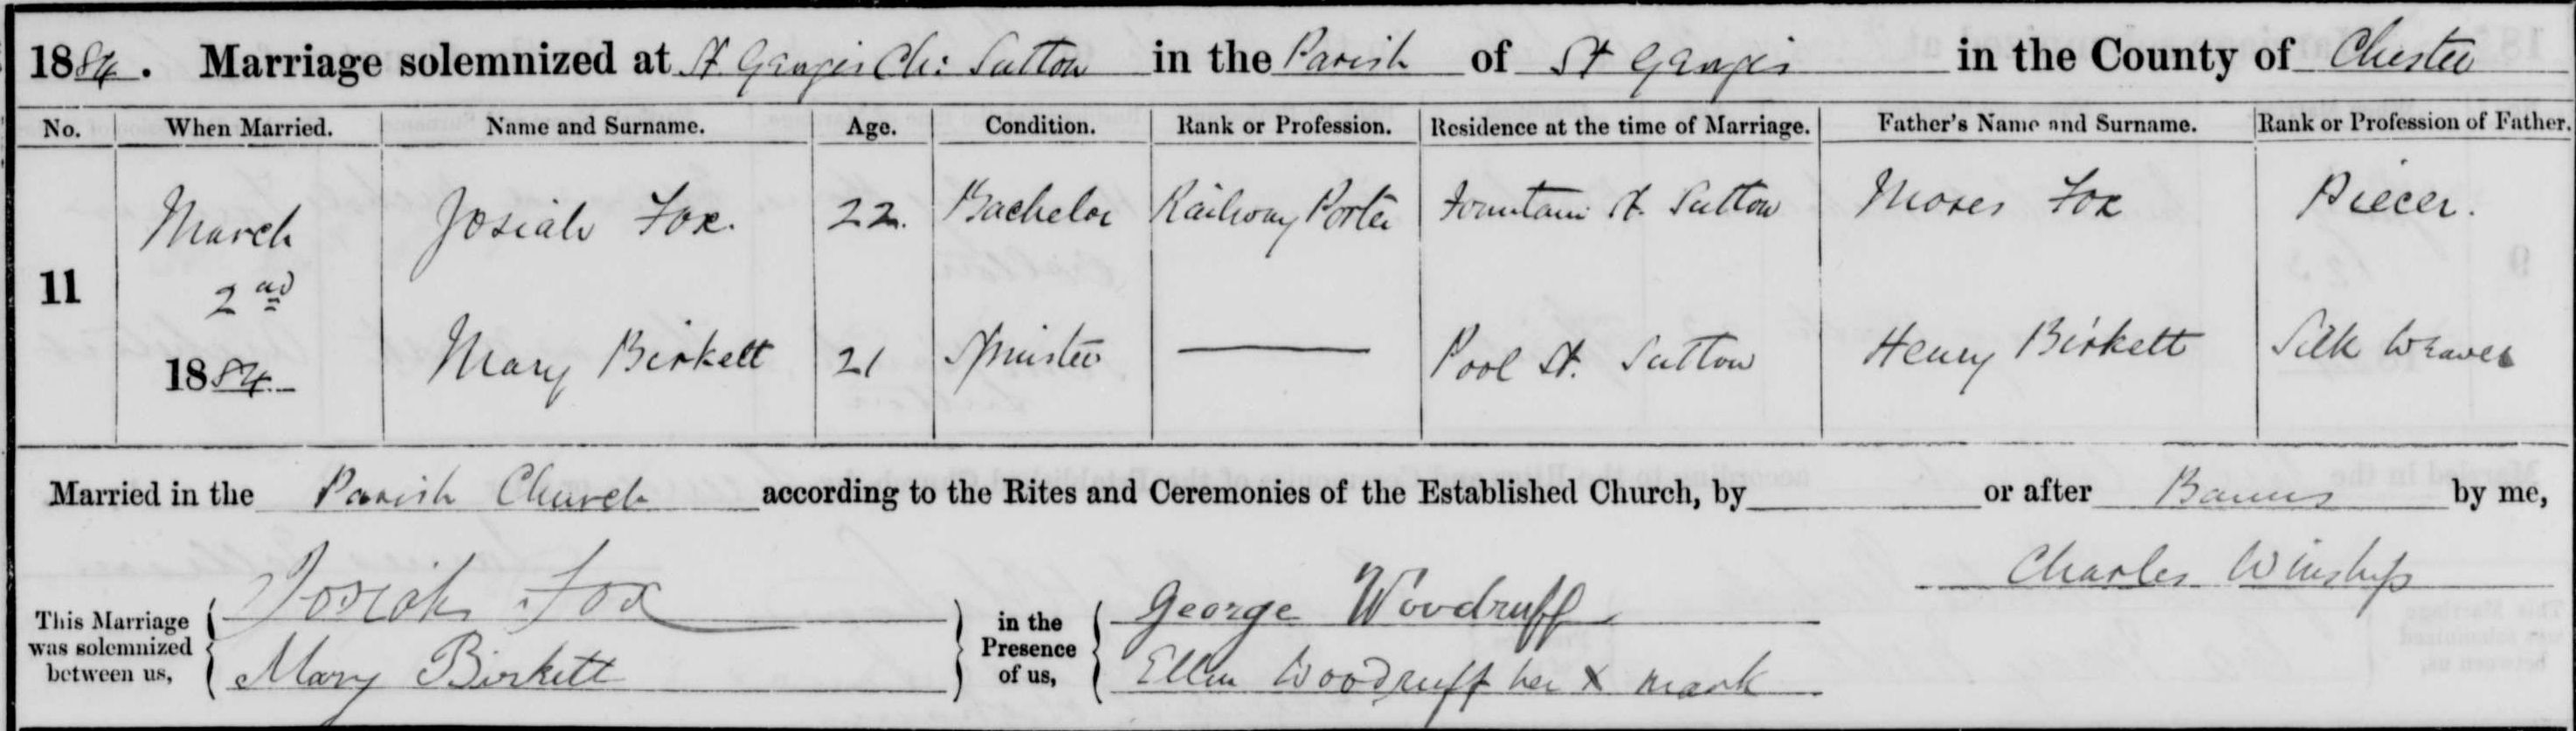 1884. Marriage solemnized at St. Georges Ch: Sutton in the Parish of St Georges in the County of Chester
No. When Married. Name and Surname. Age. Condition. Rank or Profession. Residence at the time of Marriage. Father's Name and Surname. Rank or Profession of Father.
March Josiah Fox. 22. Bachelor Railway Porter Fountain St. Sutton Moses Fox Piecer.
11 2nd
1884 Mary Birkett 21 Spinster Pool St. Sutton Henry Birkett Silk Weaver
Married in the Parish Church according to the Rites and Ceremonies of the Established Church, by or after Banns by me,
Charles Winship
This Marriage was solemnized between us, Josiah Fox Mary Birkett
in the Presence of us, George Woodruff Ellen Woodruff her X mark